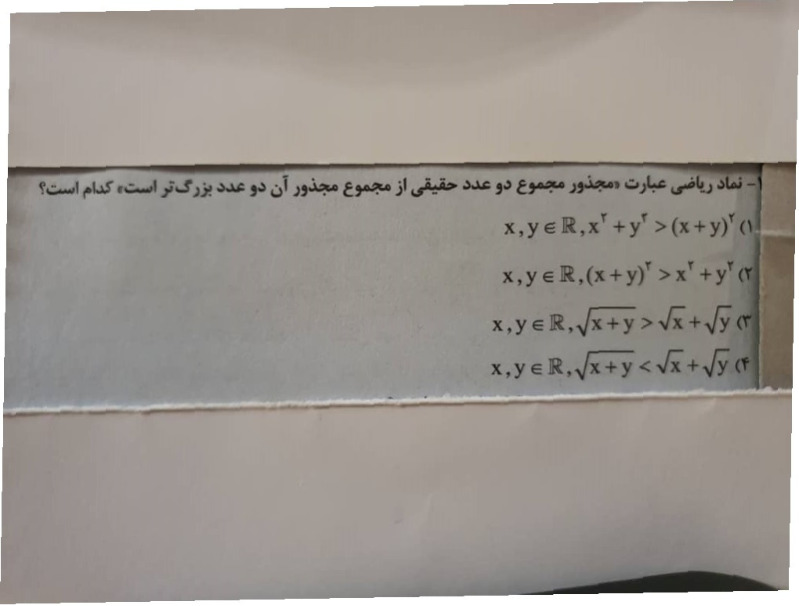 ۱- نماد ریاضی عبارت «مجذور مجموع دو عدد حقیقی از مجموع مجذور آن دو عدد بزرگ‌تر است» کدام است؟
۱) x,y∈ℝ, x^۲+y^۲>(x+y)^۲
۲) x,y∈ℝ,(x+y)^۲>x^۲+y^۲
۳) x,y∈ℝ,√(x+y)>√x+√y
۴) x,y∈ℝ,√(x+y)<√x+√y